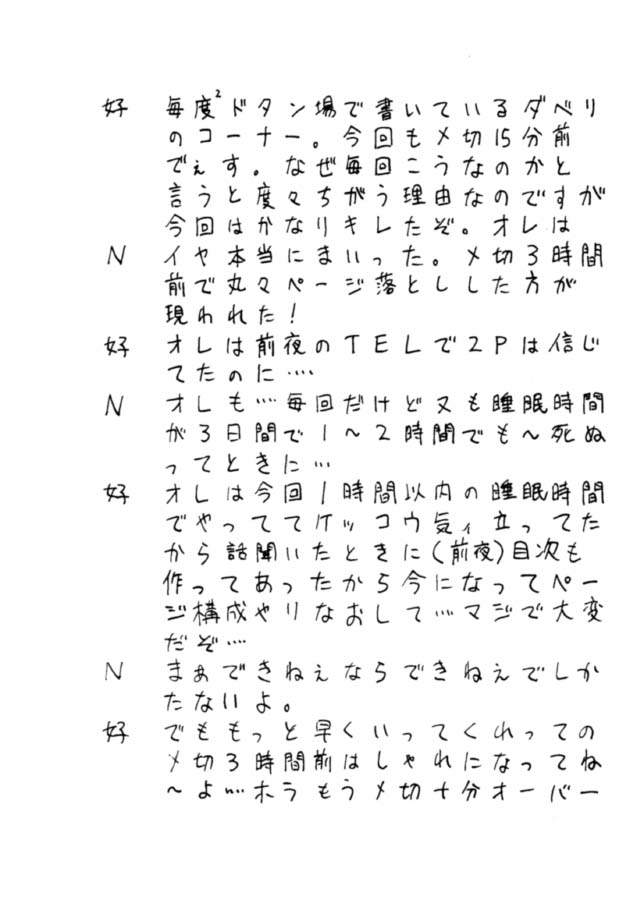 好 毎度²ドタン場で書いているダベリ
のコーナー。今回も〆切15分前
でぇす。なぜ毎回こうなのかと
言うと度々ちがう理由なのですが
今回はかなりキレたぞ。オレは
N イヤ本当にまいった。〆切3時間
前で丸々ページ落とししした方が
現われた!
好 オレは前夜のTELで2Pは信じ
てたのに‥‥
N オレも…毎回だけど又も睡眠時間
が3日間で1〜2時間でも〜死ぬ
ってときに…
好 オレは今回1時間以内の睡眠時間
でやっててケッコウ気ィ立ってた
から話聞いたときに(前夜)目次も
作ってあったから今になってペー
ジ構成やりなおして…マジで大変
だぞ‥‥
N まぁできねぇならできねぇでしか
たないよ。
好 でももっと早くいってくれっての
〆切3時間前はしゃれになってね
〜よ‥‥ホラもう〆切十分オーバー